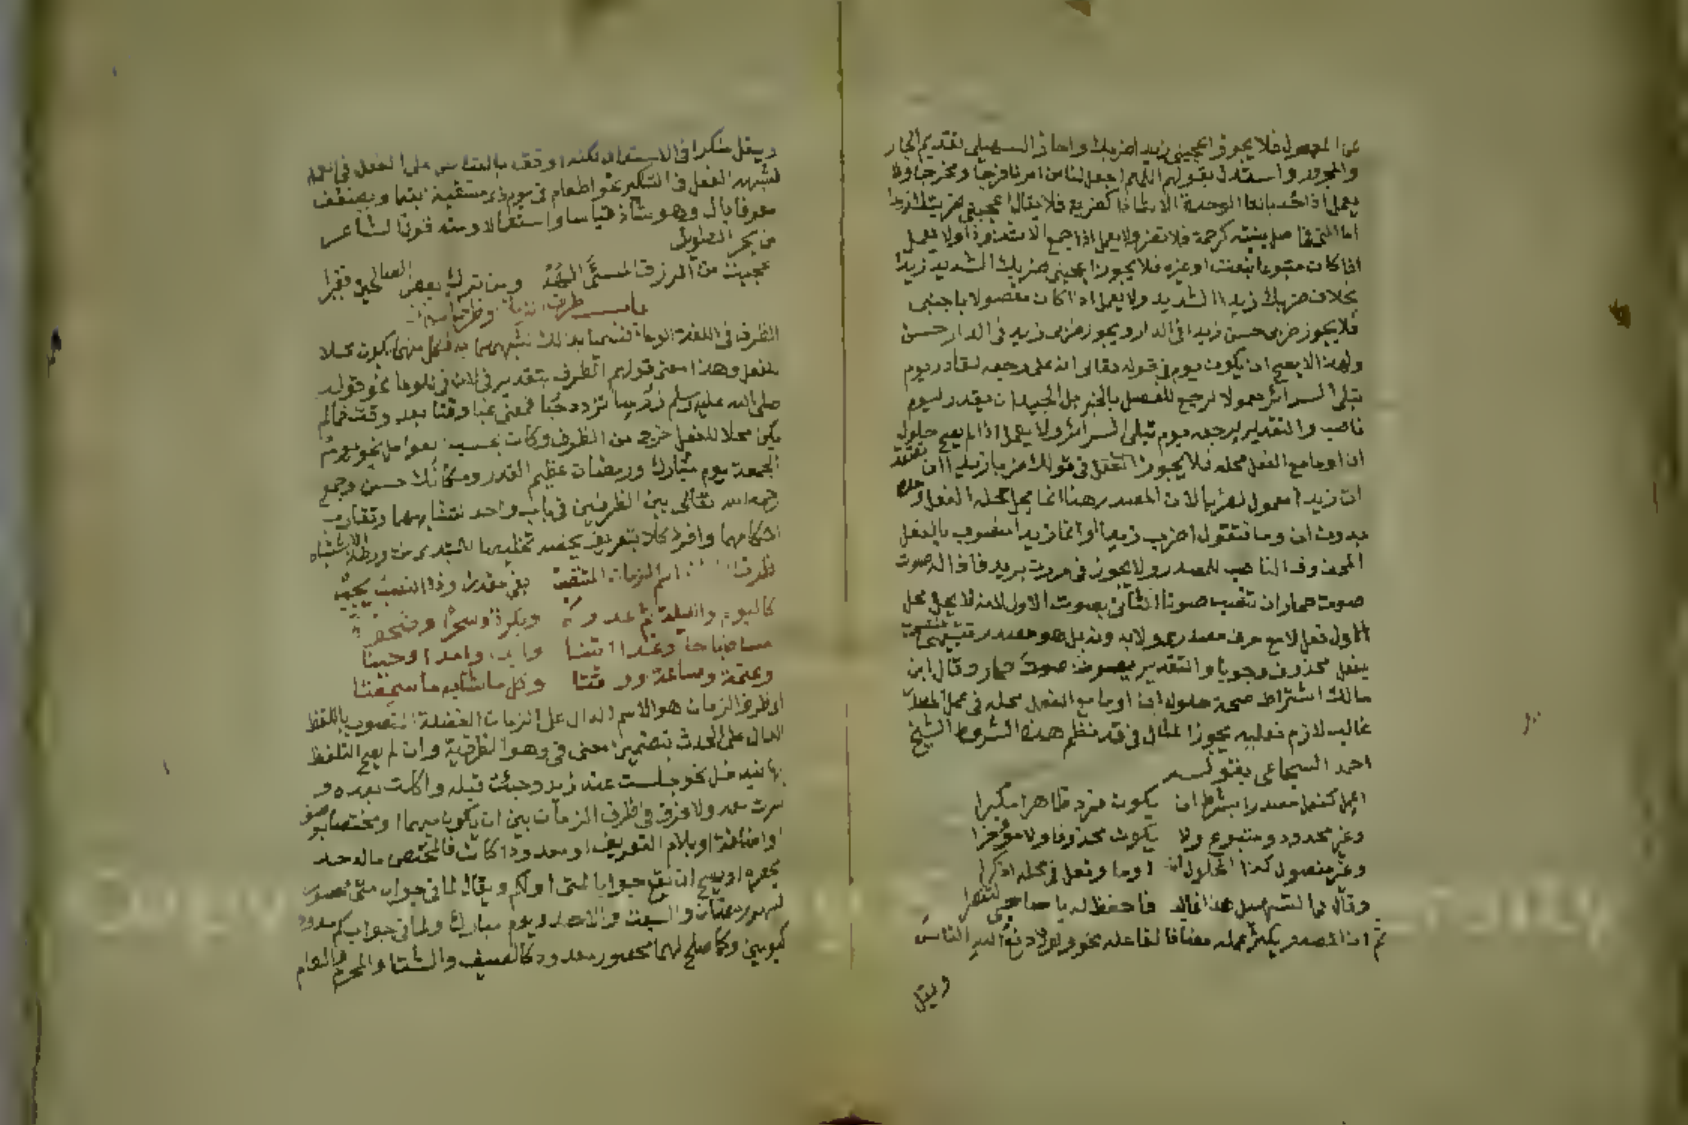 عن المعمول فلا يجوز اعجبني زيدا ضربك واجاز السهيلي تقديم الجار
والمجرور واستدل بقولهم اللهم اجعل لنا من امرنا فرجا ومخرجا ولا
يعمل اذا حد بالتاء الوحدة كضربة فلا يقال اعجبني ضربتك زيدا
اما التي في اصل بنيته كرحمة فلا تضر ولا يعمل اذا جمع ولا يعمل
اذا كان متبوعا بنعت او غيره فلا يجوز اعجبني ضربك الشديد زيدا
بخلاف ضربك زيدا الشديد ولا يعمل اذا كان مفصولا باجنبي
فلا يجوز ضربي حسن زيدا في الدار ويجوز ضربي زيد في الدار حسن
ولهذا لا يصح ان يكون يوم في قوله تعالى انه على رجعه لقادر يوم
تبلى السرائر معمولا لرجع للفصل بالخبر بل الجيد ان يقدر ليوم
ناصب والتقدير يرجعه يوم تبلى السرائر ولا يعمل اذا لم يصح حلول
ان او ما مع الفعل محله فلا يجوز في قولك ضربا زيدا ان يعتقد
ان زيدا معمول لضربا لان المصدر هنا انما يحل محله الفعل وحده
بدون ان وما فتقول اضرب زيدا وانما زيدا منصوب بالفعل
المحذوف الناصب للمصدر ولا يجوز في مررت بزيد فاذا له صوت
صوت حمار ان تنصب صوتا الثاني بصوت الاول لانه لا يحل محل
الاول فعل لا مع حرف مصدري ولا بدونه بل هو مصدر تشبيهي منصوب
بفعل محذوف وجوبا والتقدير يصوت صوت حمار وقال ابن
مالك اشتراط صحة حلول ان او ما مع الفعل محله في عمل المصدر
غالب لا لازم فعليه يجوز المثال وقد نظم هذه الشروط الشيخ
احمد السجاعي بقوله
اعمل كفعل مصدرا بشرط ان يكون مفرد ظاهرا مكبرا
وغير محدود ومتبوع ولا يكون محذوفا ولا مؤخرا
وغير مفصول كذا الحلول ان او ما وفعل في محله اذكرا
وقال في التسهيل هذا غالب فاحفظ له يا صاحبي لتظفرا
ثم ان المصدر يكثر عمله مضافا لفاعله نحو ولولا دفع الله الناس
ويقل
ويقل منكرا في الاستعمال لكنه اوفق بالقياس على الفعل في العمل
لشبهه الفعل في التنكير نحو او اطعام في يوم ذي مسغبة يتيما ويضعف
معرفا بال وهو شاذ قياسا واستعمالا ومنه قول الشاعر
من بحر الطويل
عجبت من الرزق المسيء الهه ومن ترك بعض الصالحين فقيرا
باب ظرف الزمان وظرف المكان
الظرف في اللغة الوعاء فكل منهما يكون محلا
للفعل وهذا معنى قولهم الظرف بتقدير في لان في للوعاء نحو قوله
صلى الله عليه وسلم زر غبا تزدد حبا فمعنى غبا وقتا بعد وقت فما لم
يكن محلا للفعل خرج من الظرف وكان بحسب العوامل نحو يوم
الجمعة يوم مبارك ورمضان عظيم القدر ومكانك حسن وجمع
رحمه الله تعالى بين الظرفين في باب واحد لتشابههما وتقارب
احكامهما وافرد كلا بتعريف يخصه تخليصا للمبتدي من ورطة الاشتباه
ظرف الزمان اسم الزمان المنتصب بفي مقدرا وذا النصب يجب
كاليوم والليلة ثم غدوة وبكرة وسحرا وضحوة
مسا صباحا وغدا اثبتا وابدا وامدا وحينا
وعتمة وساعة ووقتا وكل ما شابه ما سمعتا
اي ظرف الزمان هو الاسم الدال على الزمان الفضلة المنصوب باللفظ
الدال على الحدث بتضمين معنى في وهو الظرفية وان لم يصح التلفظ
بها فيدخل نحو جلست عند زيد وجئت قبله واكلت بعده و
سرت معه ولا فرق في ظرف الزمان بين ان يكون مبهما او مختصا بوصف
او اضافة او بلام التعريف او معدودا كان فالمختص ما له حد
يحصره ويصح ان يقع جوابا لمتى او لكم ويقال لما في جواب متى محصور
كشهر رمضان والسبت والاحد ويوم مبارك ولما في جواب كم معدود
كيومين وكما صلح لهما محصور معدود كالصيف والشتاء والمحرم والعام